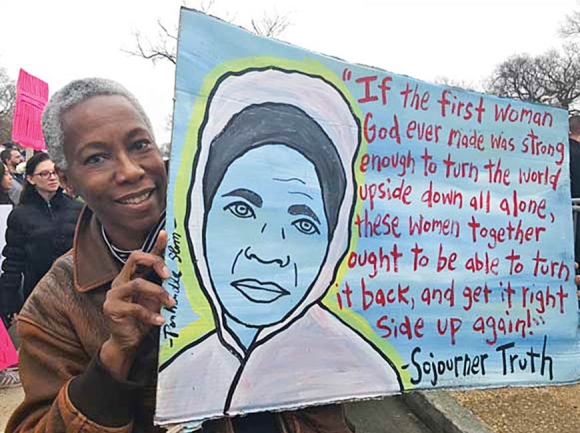 "If the first woman
God ever made was strong
enough to turn the world
upside down all alone,
these women together
ought to be able to turn
it back, and get it right
side up again!"
-Sojourner Truth